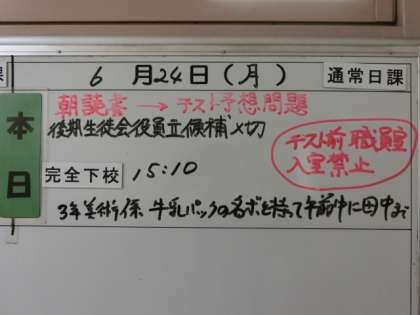 課
6月24日(月)
通常日課
本日
朝読書 → テスト予想問題
後期生徒会役員立候補〆切
テスト前職員室
入室禁止
完全下校
15:10
3年美術係 牛乳パックの名ボを持って午前中に田中まで